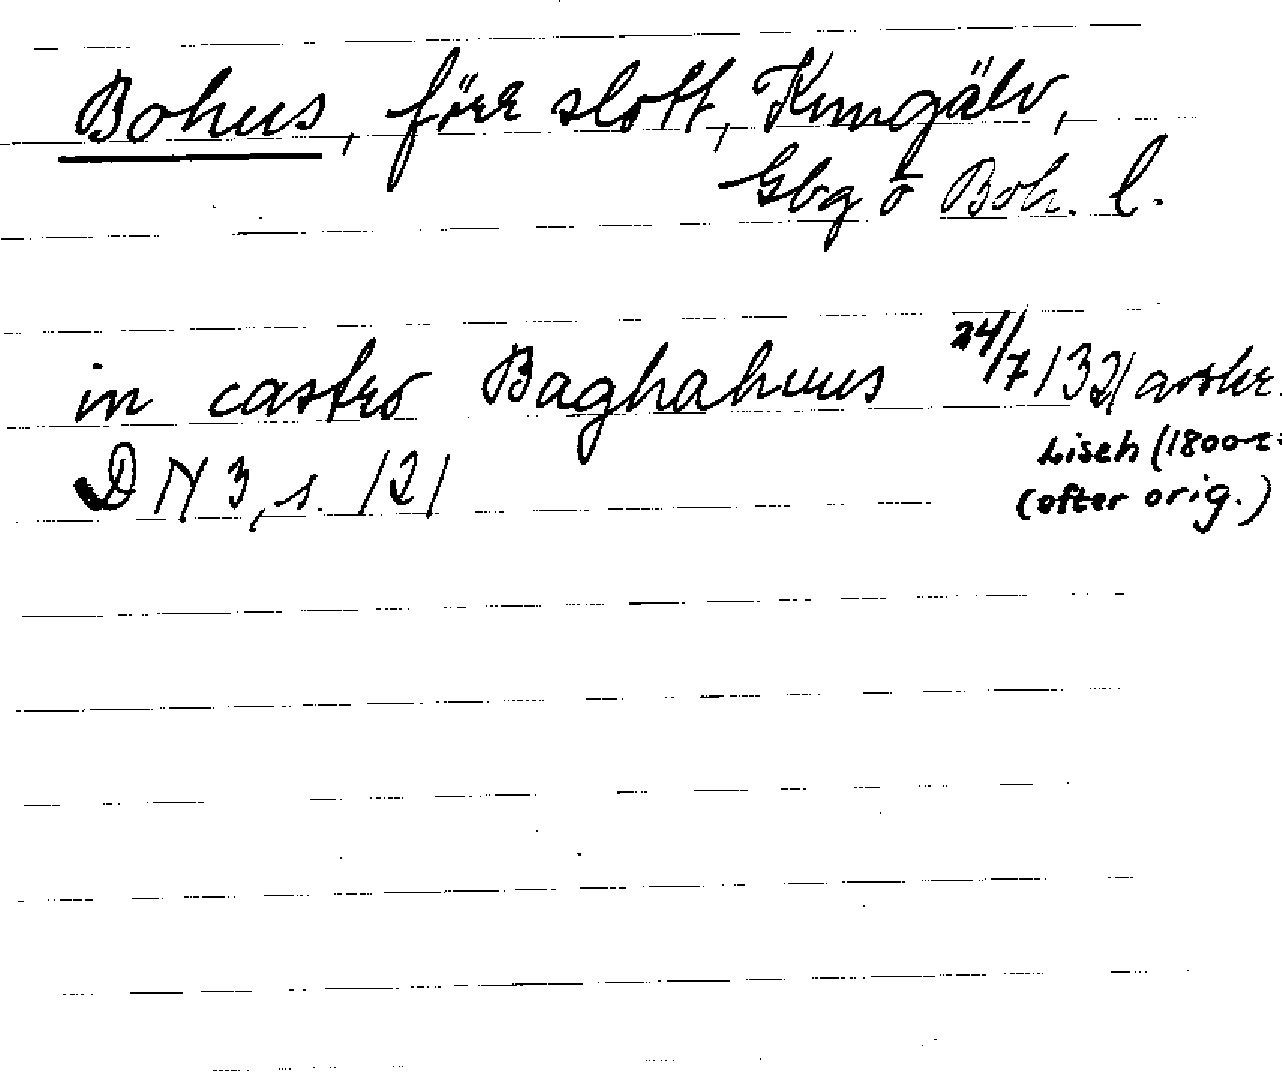 Bohus, förr slott, Kungälv,
Gbg o Boh. l.
in castro Baghahuus 24/7 1321 avskr.
Lisch (1800-t:
DN 3, s. 121
(efter orig.)